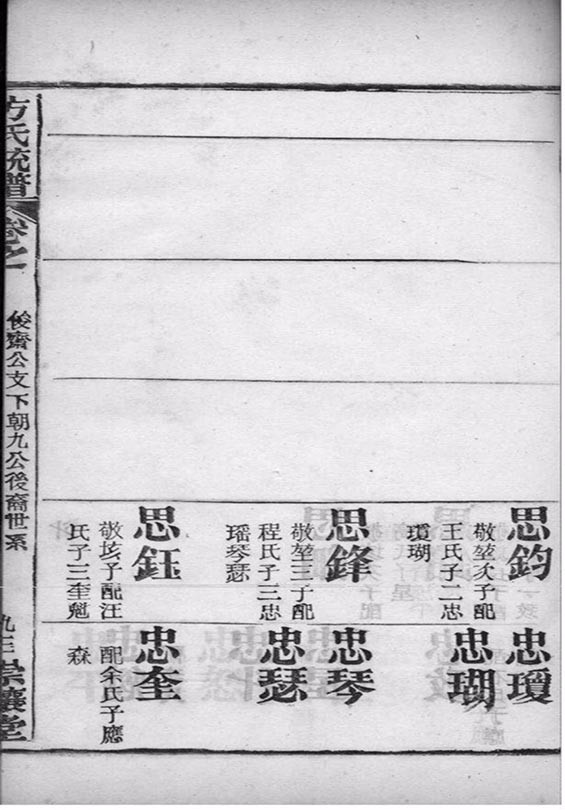 思鈞
敬堃次子配
王氏子二忠
瓊瑚
思鋒
敬堃三子配
程氏子三忠
瑶琴瑟
思鈺
敬垓子配汪
氏子三奎魁
忠瓊
忠瑚
忠琴
忠瑟
忠奎
配余氏子應
森
方氏統譜
卷之一
俊齋公文下朝九公後裔世系
崇讓堂